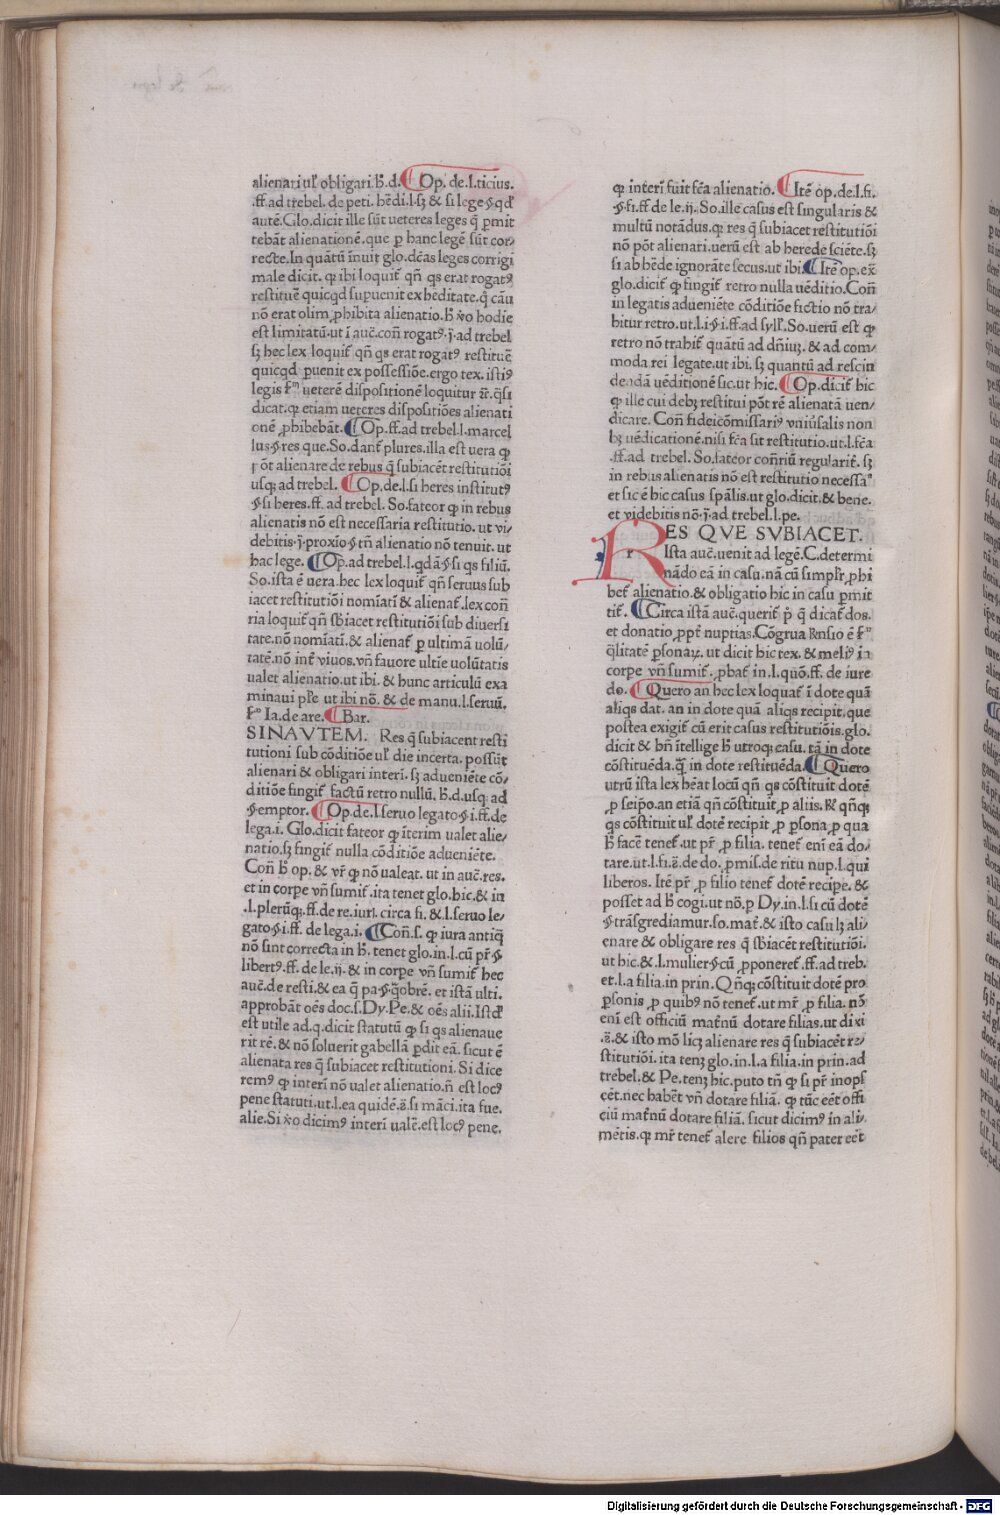 alienari ul̕ obligari.h̄.d. ¶ Op. de.l.ticius.
.ff.ad trebel. de peti. hēdi.l.sꝫ & si lege.§.qd̕
autē. Glo.dicit ille sūt ueteres leges q̄ ꝑmit
tebāt alienationē.que ꝑ hanc legē sūt cor/
recte.In quātū inuit glo.dc̄as leges corrigi
male dicit. ꝙ ibi loquit̕ qn̄ qs erat rogatꝰ
restituē quicqd supuenit ex hēditate.q̄ cāu
nō erat olim ꝓhibita alienatio.h̄ v̄o hodie
est limitatū.ut ī auc̄.con̄ rogatꝰ.ī.ad trebel
sꝫ hec lex loquit̕ qn̄ qs erat rogatꝰ restituē
quicqd ꝑuenit ex possessiōe.ergo tex. istiꝰ
legis ẜm ueterē dispositionē loquitur
dicat.ꝙ etiam ueteres dispositiōes alienati
onē ꝓhibebāt. ¶ Op.ff.ad trebel.l.marcel
lus.§.res que.So.dant̕ plures.illa est uera ꝙ
pōt alienare de rebus q̄ subiacēt restitutiōi
usqꝫ ad trebel. ¶ Op.de.l.si heres institutꝰ
§.si heres.ff. ad trebel. So.fateor ꝙ in rebus
alienatis nō est necessaria restitutio. ut vi/
debitis.ī.proxio.§.tn̄ alienatio nō tenuit. ut
hac lege. ¶ Op.ad trebel.l.qdā.§.si qs filiū.
So.ista ē uera.hec lex loquit̕ qn̄ seruus sub
iacet restitutiōi nomīati & alienat̕.lex con̄
ria loquit̕ qn̄ sb̄iacet restitutiōi sub diuersi
tate.nō nomīati.& alienat̕ ꝑ ultimā uolū/
tatē.nō int̕ viuos.vn̄ fauore ultīe uolūtatis
ualet alienatio.ut ibi. & hunc articulū exa
minaui pl̄e ut ibi nō. & de manu.l.seruū.
ẜm Ia.de are. ¶ Bar.
SINAVTEM. Res q̄ subiacent resti
tutioni sub cōditiōe ul̕ die incerta. possūt
alienari & obligari interi. sꝫ adueniēte cō/
ditiōe fingit̕ factū retro nullū. h̄.d.usqꝫ ad
§.emptor. ¶ Op.de.l.seruo legato.§.i.ff.de
lega.i. Glo.dicit fateor ꝙ īterim ualet alie/
natio.sꝫ fingit̕ nulla cōditiōe adueniēte.
Con̄ h̄ op. & vr̄ ꝙ nō ualeat. ut in auc̄.res.
et in corpe vn̄ sumit̕.ita tenet glo.hic.& in
.l.plerūqꝫ.ff.de re.iur. circa fi. & l.seruo le/
gato.§.i.ff. de lega.i. ¶ Con̄.s. ꝙ iura antiq̄
nō sint correcta in h̄. tenet glo.in.l.cū pr̄.§
libertꝰ.ff. de le.ij.& in corpe vn̄ sumit̕ hec
auc̄.de resti.& ea q̄ pa.§.q̄obrē. et istā ulti.
approbāt oēs doc.s.Dy.Pe.& oēs alii.Istd̕
est utile ad.q.dicit statutū ꝙ si qs alienaue
rit rē.& nō soluerit gabellā ꝑdit eā. sicut ē
alienata res q̄ subiacet restitutioni. Si dice
remꝰ ꝙ interi nō ualet alienatio.n̄ est locꝰ
pene statuti.ut.l.ea quidē. si māci.ita fue.
alie.Si v̄o dicimꝰ interi ualē.est locꝰ pene.
ꝙ interī fuit fc̄a alienatio. ¶ Itē op.de.l.fi.
.§.fi.ff de le.ij. So.ille casus est singularis &
multū notādus.ꝙ res q̄ subiacet restitutiōi
nō pōt alienari.uerū est ab herede sciēte.sꝫ
si ab hēde ignorāte secus.ut ibi. ¶ Itē op.ex
glo.dicit̕ ꝙ fingit̕ retro nulla uēditio.Con̄
in legatis adueniēte cōditiōe fictio nō tra/
hitur retro.ut.l.i.§.i.ff.ad syll̕.So.uerū est ꝙ
retro nō trahit̕ quātū ad dn̄iuꝫ. & ad com/
moda rei legate.ut ibi.sꝫ quantū ad rescin
dendā uēditionē sic.ut hic. ¶ Op.dicit̕ hic
ꝙ ille cui debꝫ restitui pōt rē alienatā uen/
dicare. Con̄ fideicōmissariꝰ vniūsalis non
hꝫ uēdicationē.nisi fc̄a sit restitutio.ut.l.fc̄a
.ff.ad trebel. So.fateor con̄riū regularit̕. sꝫ
in rebus alienatis nō est restitutio necessaᵃ
et sic ē hic casus sp̄alis.ut glo.dicit.& bene.
et videbitis nō.ī.ad trebel.l.pe.
RES QVE SVBIACET.
Ista auc̄.uenit ad legē.C.determi
nādo eā in casu.nā cū simpl̄r ꝓhi
bet̕ alienatio.& obligatio hic in casu ꝑmit
tit̕. ¶ Circa istā auc̄.querit̕ p̄ q̄ dicat̕ dos.
et donatio ꝓpt̕ nuptias.Cōgrua rn̄sio ē ẜm
q̄litatē ꝑsonaꝝ. ut dicit hic tex. & meliꝰ in
corpe vn̄ sumit̕. ꝓbat̕ in.l.quō.ff. de iure
do. ¶ Quero an hec lex loquat̕ ī dote quā
aliqs dat. an in dote quā aliqs recipit.que
postea exigit̕ cū erit casus restitutiōis.glo.
dicit & bn̄ ītellige h̄ utroqꝫ casu. tā in dote
cōstituēda.q̄ in dote restituēda. ¶ Quero
utrū ista lex hēat locū qn̄ qs cōstituit dotē
ꝓ seipo.an etiā qn̄ cōstituit̕ ꝓ aliis. qn̄qꝫ
qs cōstituit ul̕ dotē recipit ꝓ ꝑsona ꝓ qua
h̄ facē tenet̕.ut pr̄ ꝓ filia. tenet̕ enī eā do/
tare.ut.l.fi. de do. ꝓmis.de ritu nup.l.qui
liberos. Itē pr̄ ꝓ filio tenet̕ dotē recipe. &
posset ad h̄ cogi.ut nō.ꝑ Dy.in.l.si cū dotē
§.trāsgrediamur.so.mat̕.& isto casu lꝫ ali/
enare & obligare res q̄ sb̄iacēt restitutiōi.
ut hic.& l.mulier.§.cū ꝓponeret̕.ff.ad treb.
et.l.a filia.in prin. Qn̄qꝫ cōstituit dotē pro
ꝑsonis ꝓ quibꝰ nō tenet̕.ut mr̄ ꝓ filia. nō
enī est officiū mat̄nū dotare filias.ut dixi
.& isto mō licꝫ alienare res q̄ subiacēt re/
stitutiōi. ita tenꝫ glo.in.l.a filia.in prin.ad
trebel.& Pe.tenꝫ hic.puto tn̄ ꝙ si pr̄ inops
eēt.nec habēt vn̄ dotare filiā. ꝙ tūc eēt offi
ciū mat̄nū dotare filiā. sicut dicimꝰ in ali/
mētis.ꝙ mr̄ tenet̕ alere filios qn̄ pater eēt
Digitalisierung gefördert durch die Deutsche Forschungsgemeinschaft - DFG